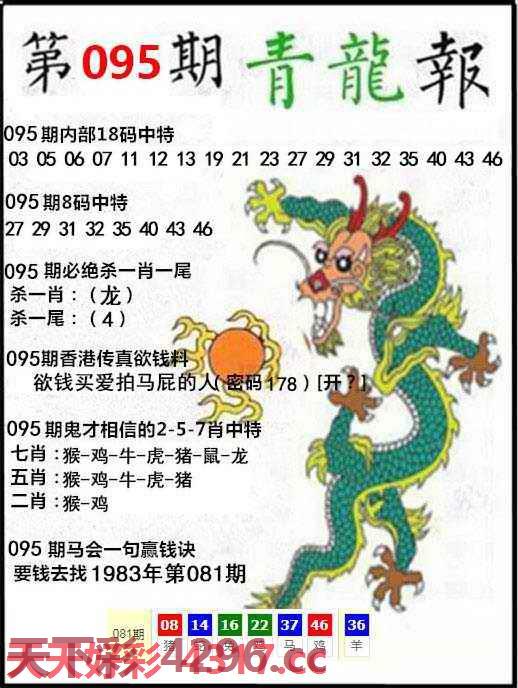 第095期青龍報
095期内部18码中特
03 05 06 07 11 12 13 19 21 23 27 29 31 32 35 40 43 46
095期8码中特
27 29 31 32 35 40 43 46
095 期必绝杀一肖一尾
杀一肖：（龙）
杀一尾：（4）
095期香港传真欲钱料
欲钱买爱拍马屁的人(密码178）[开？]
095期鬼才相信的2-5-7肖中特
七肖：猴-鸡-牛-虎-猪-鼠-龙
五肖：猴-鸡-牛-虎-猪
二肖：猴-鸡
095 期马会一句赢钱诀
要钱去找1983年第081期
081期 08 14 16 22 37 46 36
猪 马 鸡 羊
天天好彩44397.cc